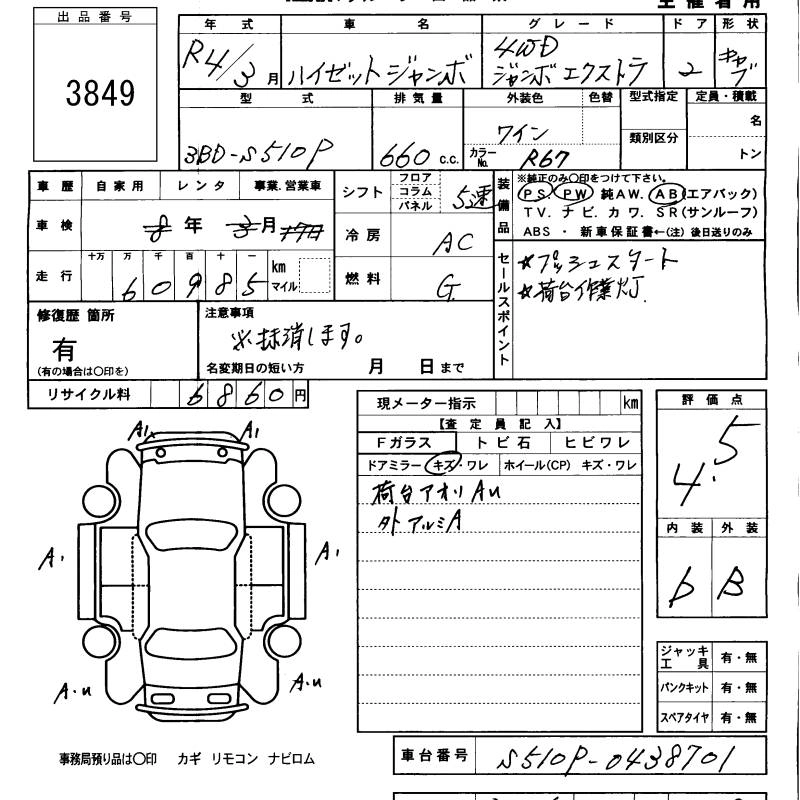 出品番号
3849
年式 車名 グレード ドア 形状
R4/3月 ハイゼット ジャンボ 4WD ジャンボ エクストラ 2 キャブ
型式 排気量 外装色 色替 型式指定 定員・積載
3BD-S510P 660 c.c. ワイン 類別区分 名
カラーNo. R67 トン
車歴 自家用 レンタ 事業.営業車
シフト フロア コラム パネル 5速
装備品 ※純正のみ〇印をつけて下さい。
PS. PW. 純AW. AB(エアバック)
TV. ナビ. カワ. SR(サンルーフ)
ABS ・ 新車保証書←(注) 後日送りのみ
車検 8年 3月
冷房 AC
走行 十万 万 千 百 十 一
60985 km マイル
燃料 G
セールスポイント
☆プッシュスタート
☆荷台作業灯
修復歴 箇所
有
(有の場合は〇印を)
注意事項
※抹消します。
名変期日の短い方 月 日まで
リサイクル料 6860円
現メーター指示 km
【査定員記入】
Fガラス トビ石 ヒビワレ
ドアミラー キズ・ワレ ホイール(CP) キズ・ワレ
荷台アオリ AU
外 アルミA
評価点
4.5
内装 外装
b B
A1 A1
A1 A1
A.u A.u
ジャッキ工具 有・無
パンクキット 有・無
スペアタイヤ 有・無
事務局預り品は〇印 カギ リモコン ナビロム
車台番号 S510P-0438701